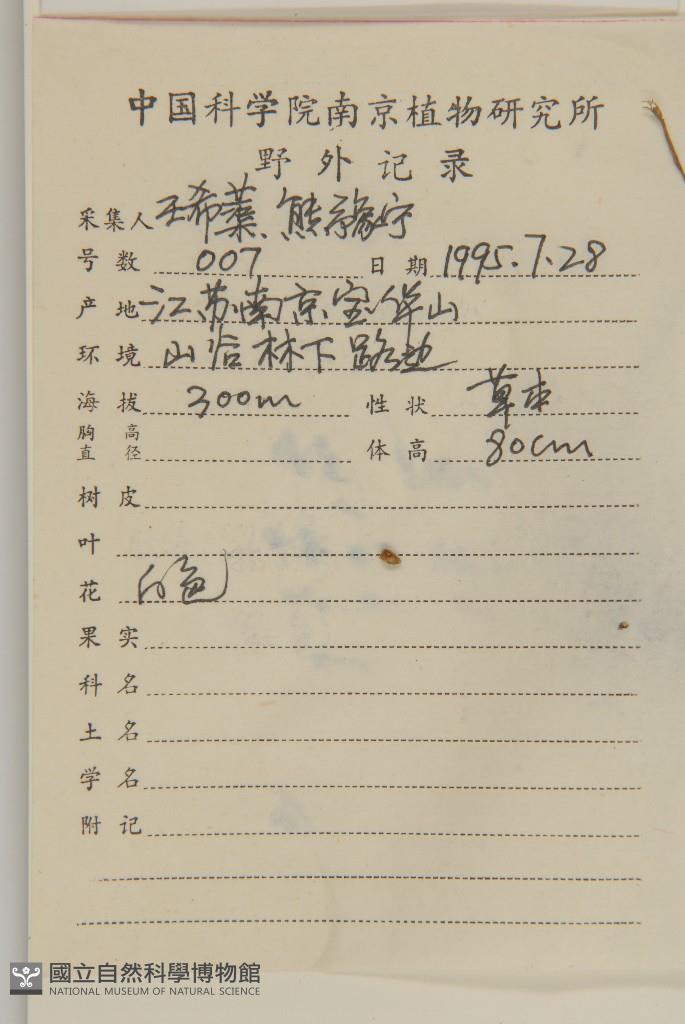 中国科学院南京植物研究所
野外记录
采集人 王希蕖、熊豫宁
号数 007 日期 1995.7.28
产地 江苏南京宝华山
环境 山谷林下路边
海拔 300m 性状 草本
胸高直径 体高 80cm
树皮
叶
花 白色
果实
科名
土名
学名
附记
國立自然科學博物館
NATIONAL MUSEUM OF NATURAL SCIENCE